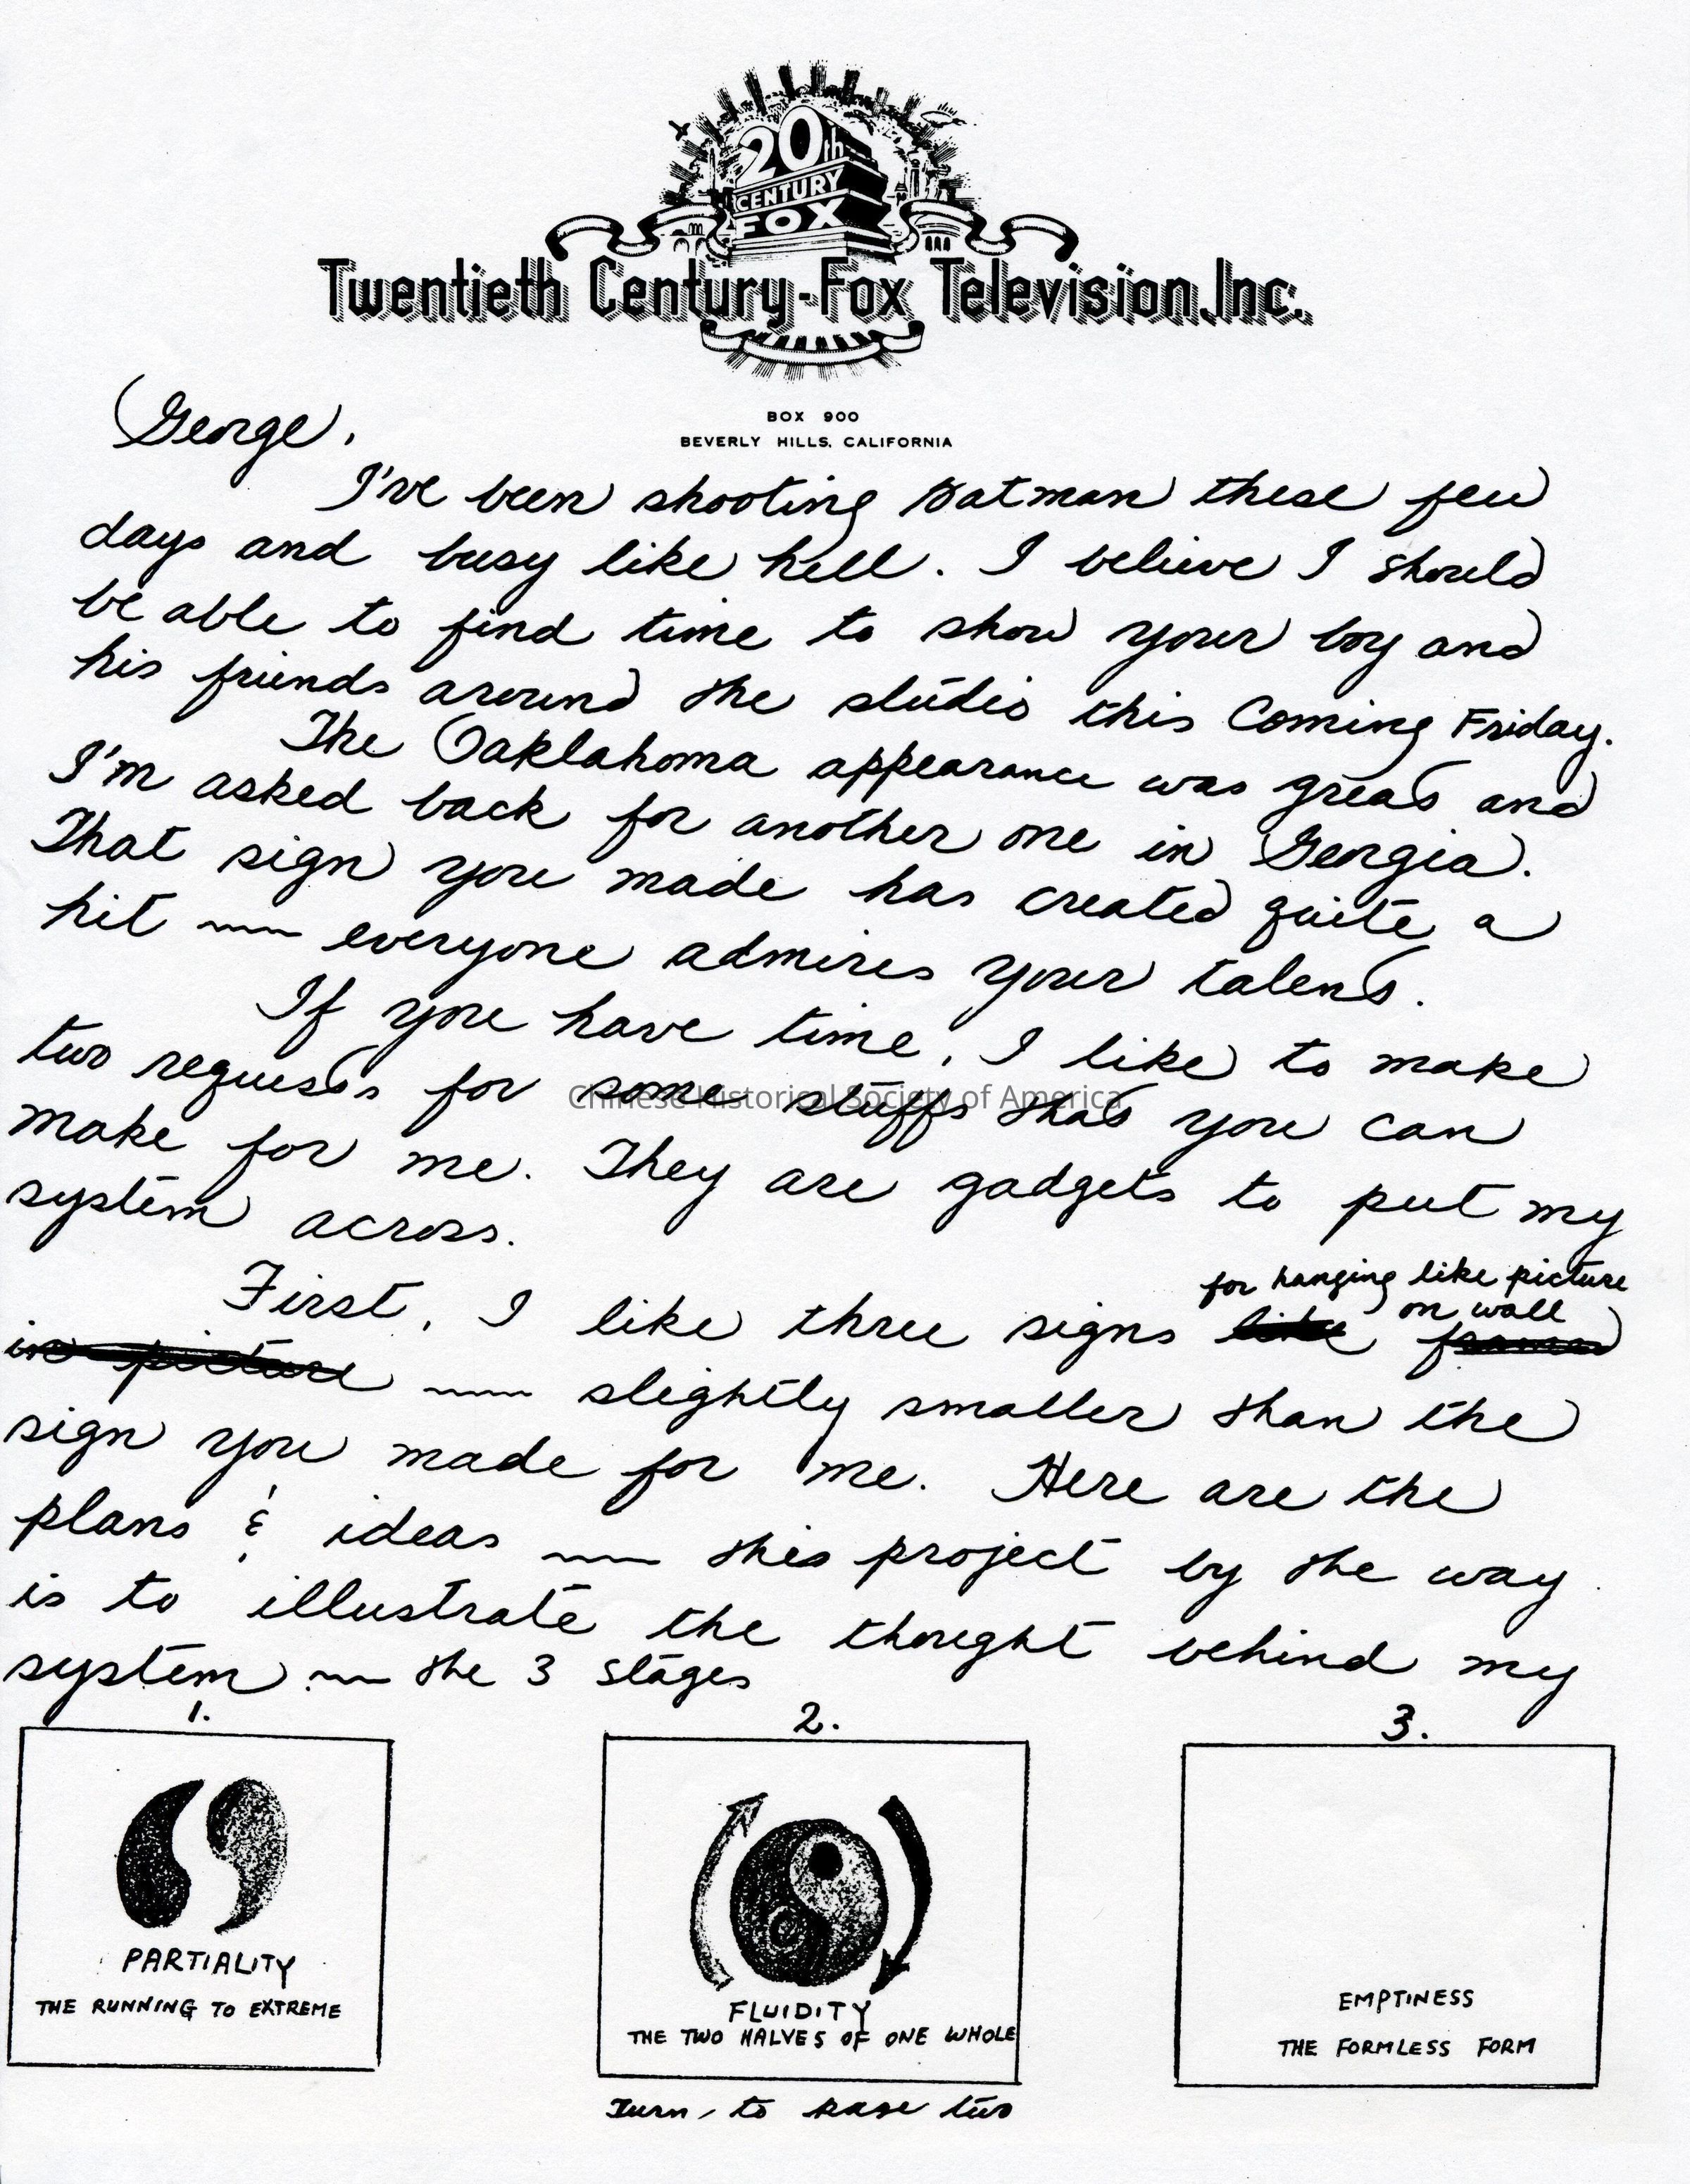 20th
CENTURY
FOX
Twentieth Century-Fox Television, Inc.
BOX 900
BEVERLY HILLS, CALIFORNIA
George,
I've been shooting Batman these few
days and busy like hell. I believe I should
be able to find time to show your boy and
his friends around the studio this Coming Friday.
The Oaklahoma appearance was great and
I'm asked back for another one in Georgia.
That sign you made has created quite a
hit — everyone admires your talent.
If you have time, I like to make
two requests for some stuffs that you can
make for me. They are gadgets to put my
system across.
for hanging like picture
on wall
First, I like three signs like frames
in picture — slightly smaller than the
sign you made for me. Here are the
plans & ideas — this project by the way
is to illustrate the thought behind my
system — the 3 stages
1. 2. 3.
PARTIALITY
THE RUNNING TO EXTREME
FLUIDITY
THE TWO HALVES OF ONE WHOLE
EMPTINESS
THE FORMLESS FORM
Turn to page two
Chinese Historical Society of America